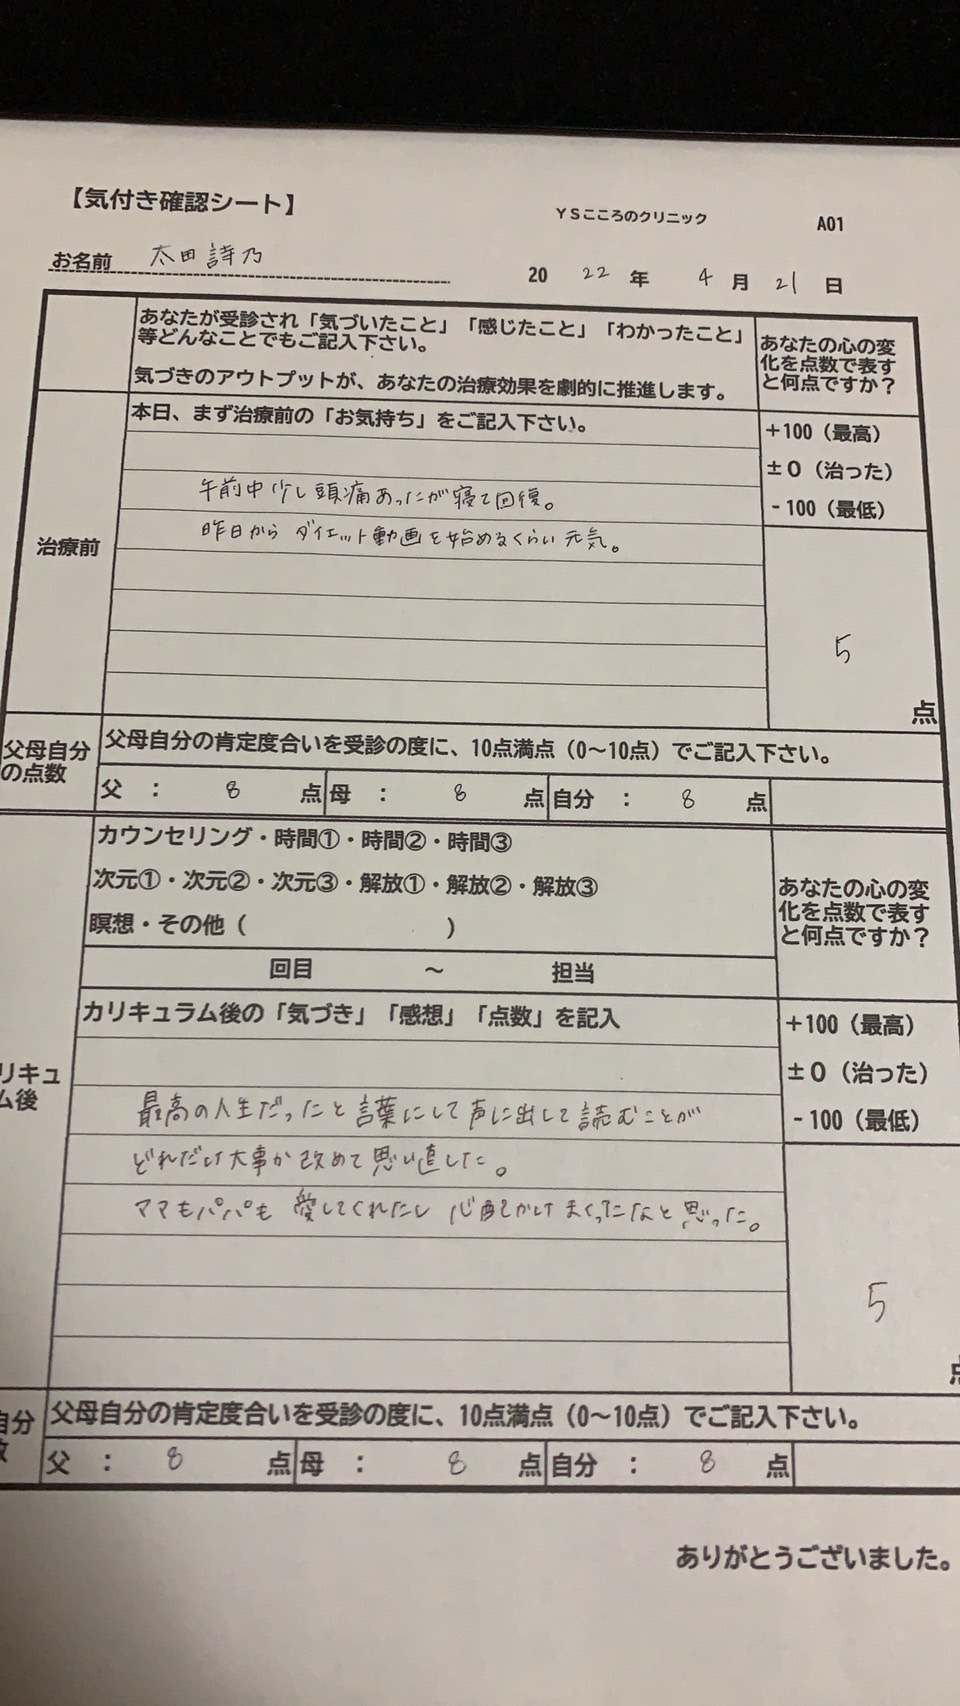 【気付き確認シート】
YSこころのクリニック
A01
お名前 太田詩乃
20 22 年 4 月 21 日
あなたが受診され「気づいたこと」「感じたこと」「わかったこと」
等どんなことでもご記入下さい。
気づきのアウトプットが、あなたの治療効果を劇的に推進します。
あなたの心の変
化を点数で表す
と何点ですか？
治療前
本日、まず治療前の「お気持ち」をご記入下さい。
午前中少し頭痛あったが寝て回復。
昨日からダイエット動画を始めるくらい元気。
+100（最高）
±0（治った）
-100（最低）
5
点
父母自分
の点数
父母自分の肯定度合いを受診の度に、10点満点（0～10点）でご記入下さい。
父 : 8 点 母 : 8 点 自分 : 8 点
カウンセリング・時間①・時間②・時間③
次元①・次元②・次元③・解放①・解放②・解放③
瞑想・その他（ ）
回目 ～ 担当
あなたの心の変
化を点数で表す
と何点ですか？
リキュ
ム後
カリキュラム後の「気づき」「感想」「点数」を記入
最高の人生だったと言葉にして声に出して読むことが
どれだけ大事か改めて思い直した。
ママもパパも愛してくれたし心配かけまくったなと思った。
+100（最高）
±0（治った）
-100（最低）
5
点
自分
数
父母自分の肯定度合いを受診の度に、10点満点（0～10点）でご記入下さい。
父 : 8 点 母 : 8 点 自分 : 8 点
ありがとうございました。